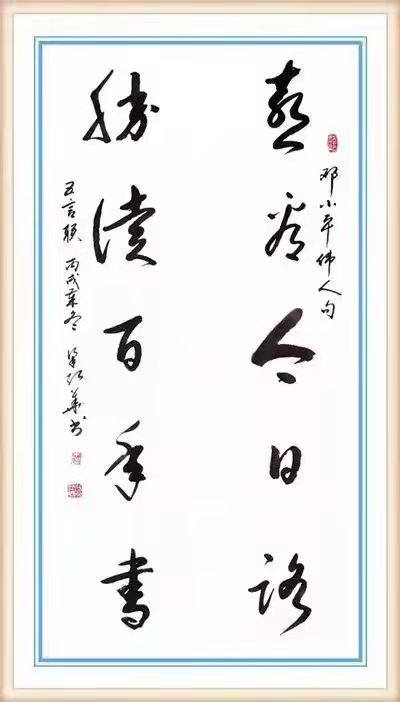 邓小平伟人句
喜看今日路
勝讀百年書
五言联 丙戌 冬 華书